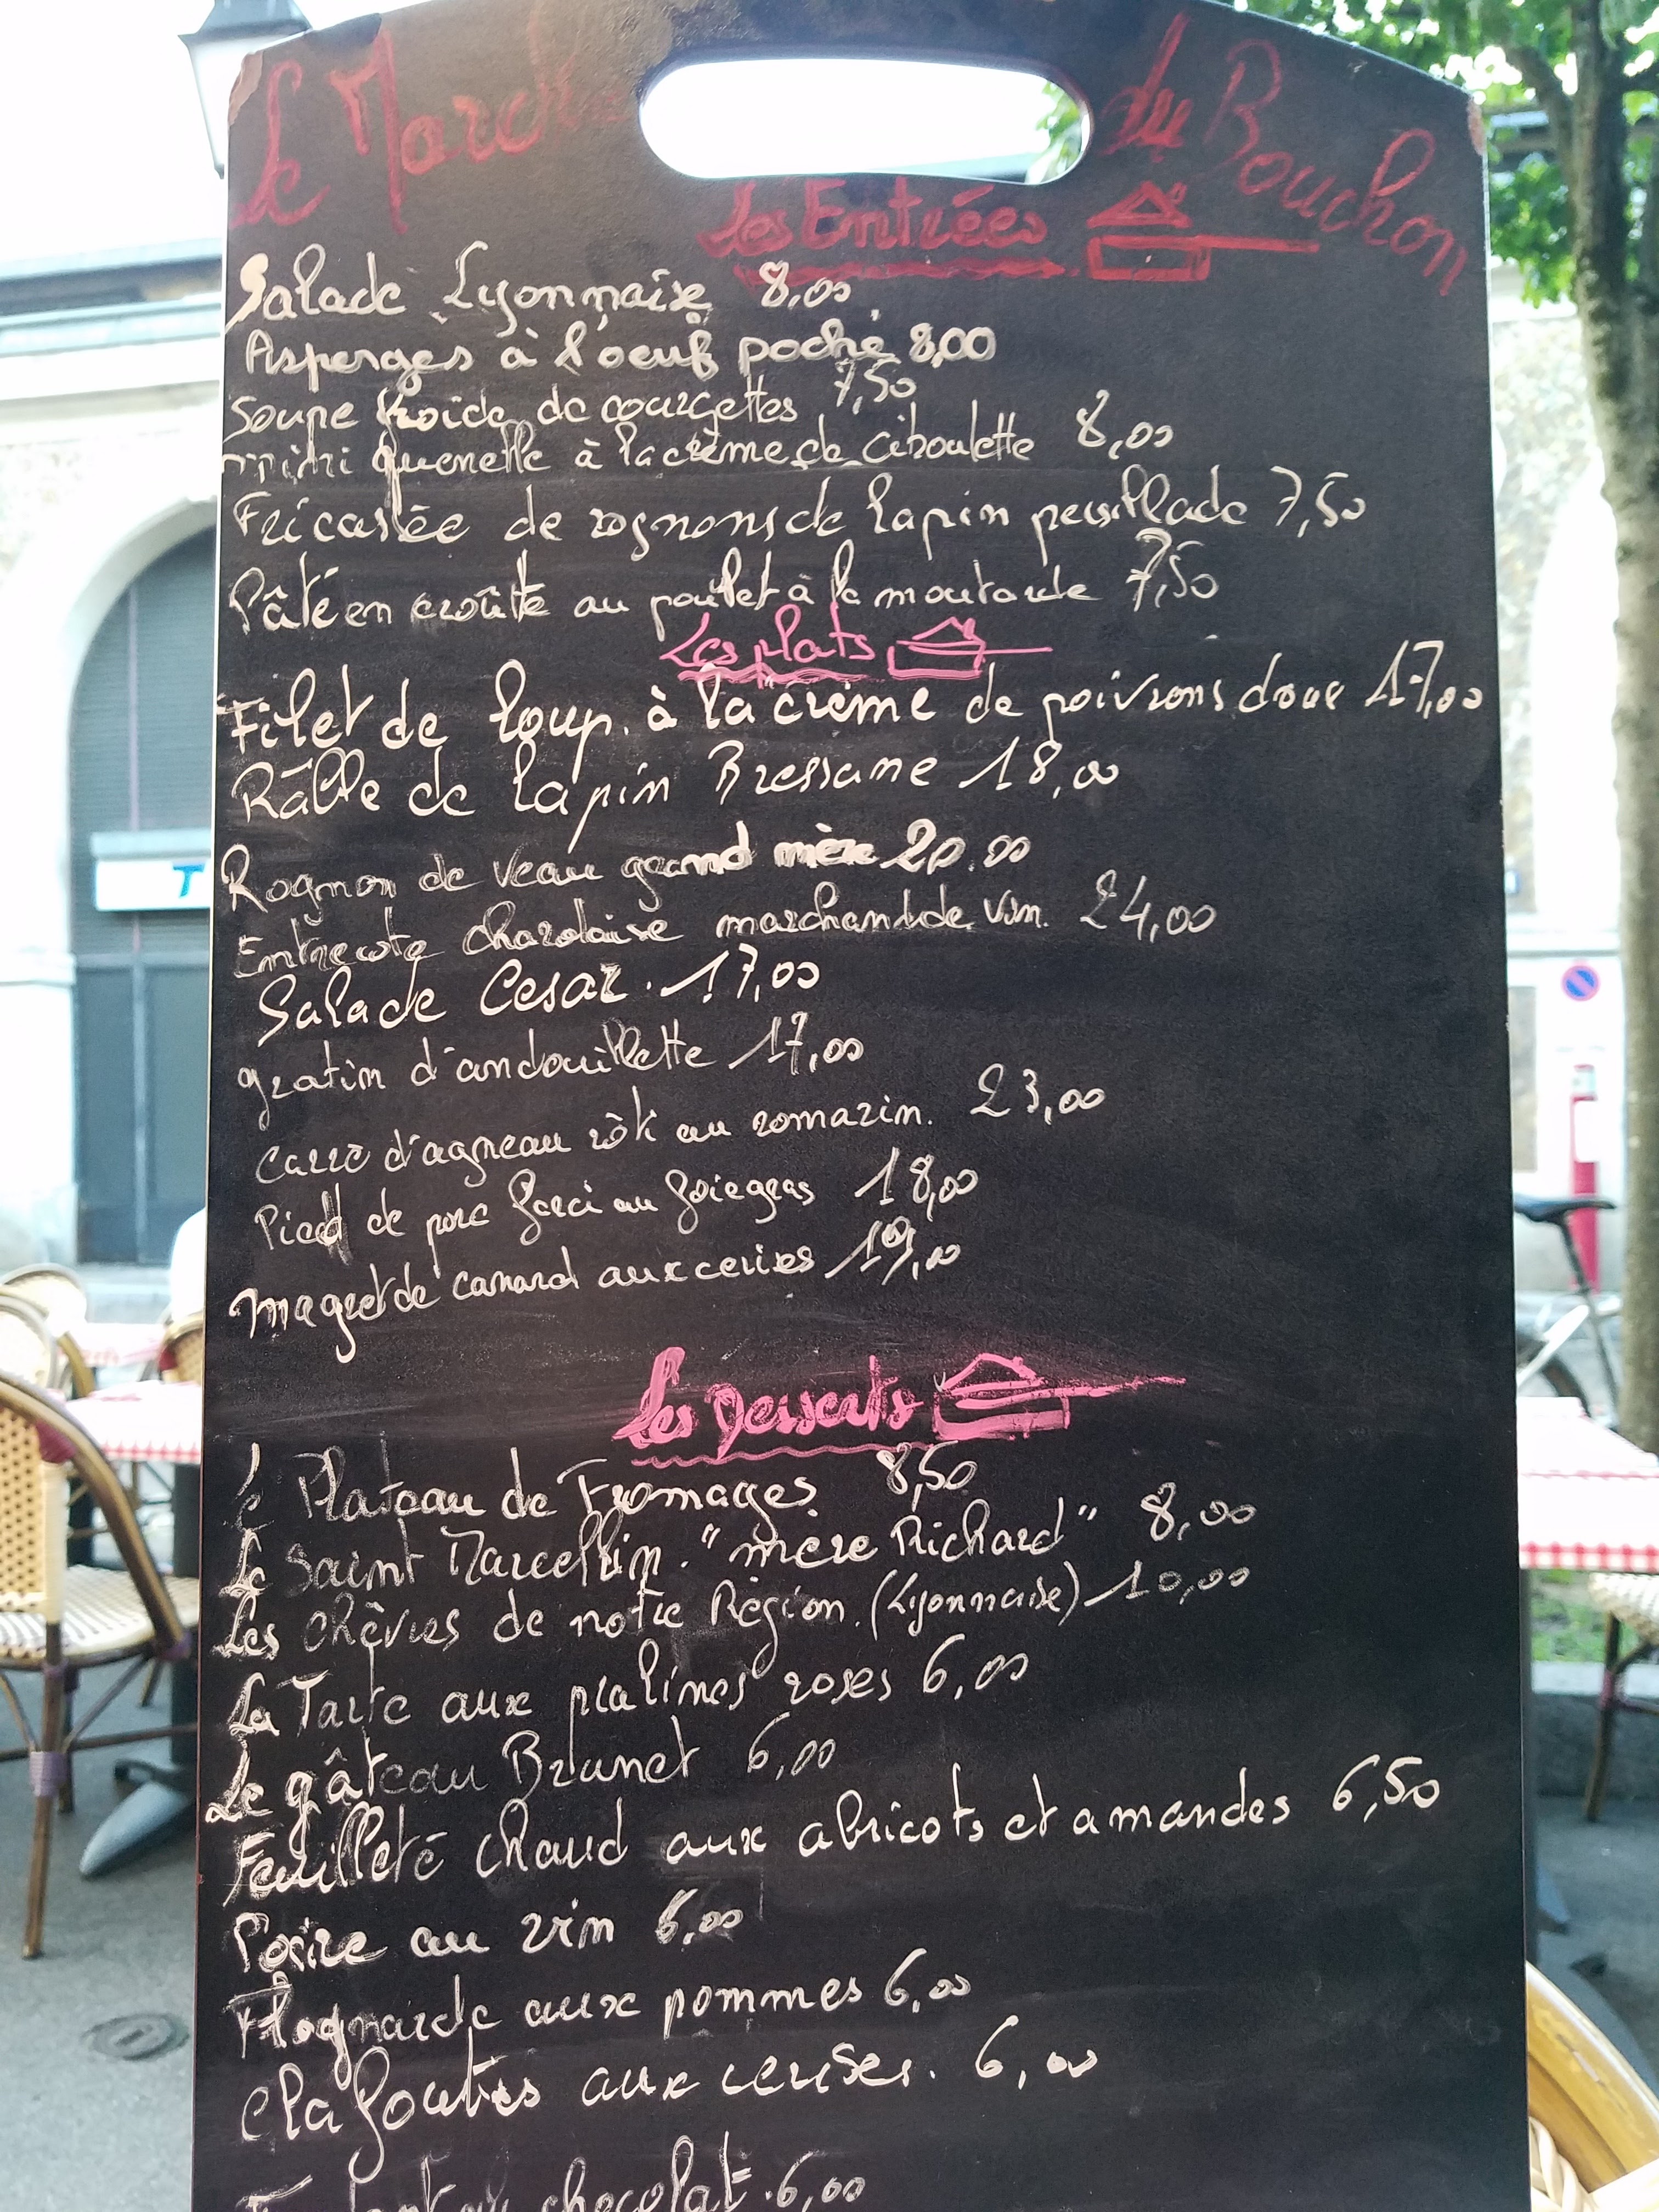 Le Marché du Bouchon
Les Entrées
Salade Lyonnaise 8,00
Asperges à l'oeuf poché 8,00
Soupe froide de courgettes 7,50
mini quenelle à la crème de ciboulette 8,00
Fricassée de rognons de lapin persillade 7,50
Pâté en croûte au poulet à la moutarde 7,50
Les plats
Filet de loup. à la crème de poivrons doux 17,00
Râble de lapin Bressane 18,00
Rognon de veau grand mère 20.00
Entrecote charolaise marchand de vin. 24,00
Salade Cesar. 17,00
gratin d'andouillette 17,00
Carré d'agneau rôti au romarin. 23,00
Pied de porc farci au foie gras 18,00
magret de canard aux cerises 19,00
Les Desserts
Le Plateau de Fromages 8,50
Le Saint Marcellin. "mère Richard" 8,00
Les chèvres de notre Région. (Lyonnaise) 10,00
La Tarte aux pralines roses 6,00
Le gâteau Brunet 6,00
Feuilleté chaud aux abricots et amandes 6,50
Poire au vin 6,00
Flognarde aux pommes 6,00
Clafoutis aux cerises. 6,00
chocolat. 6,00
T